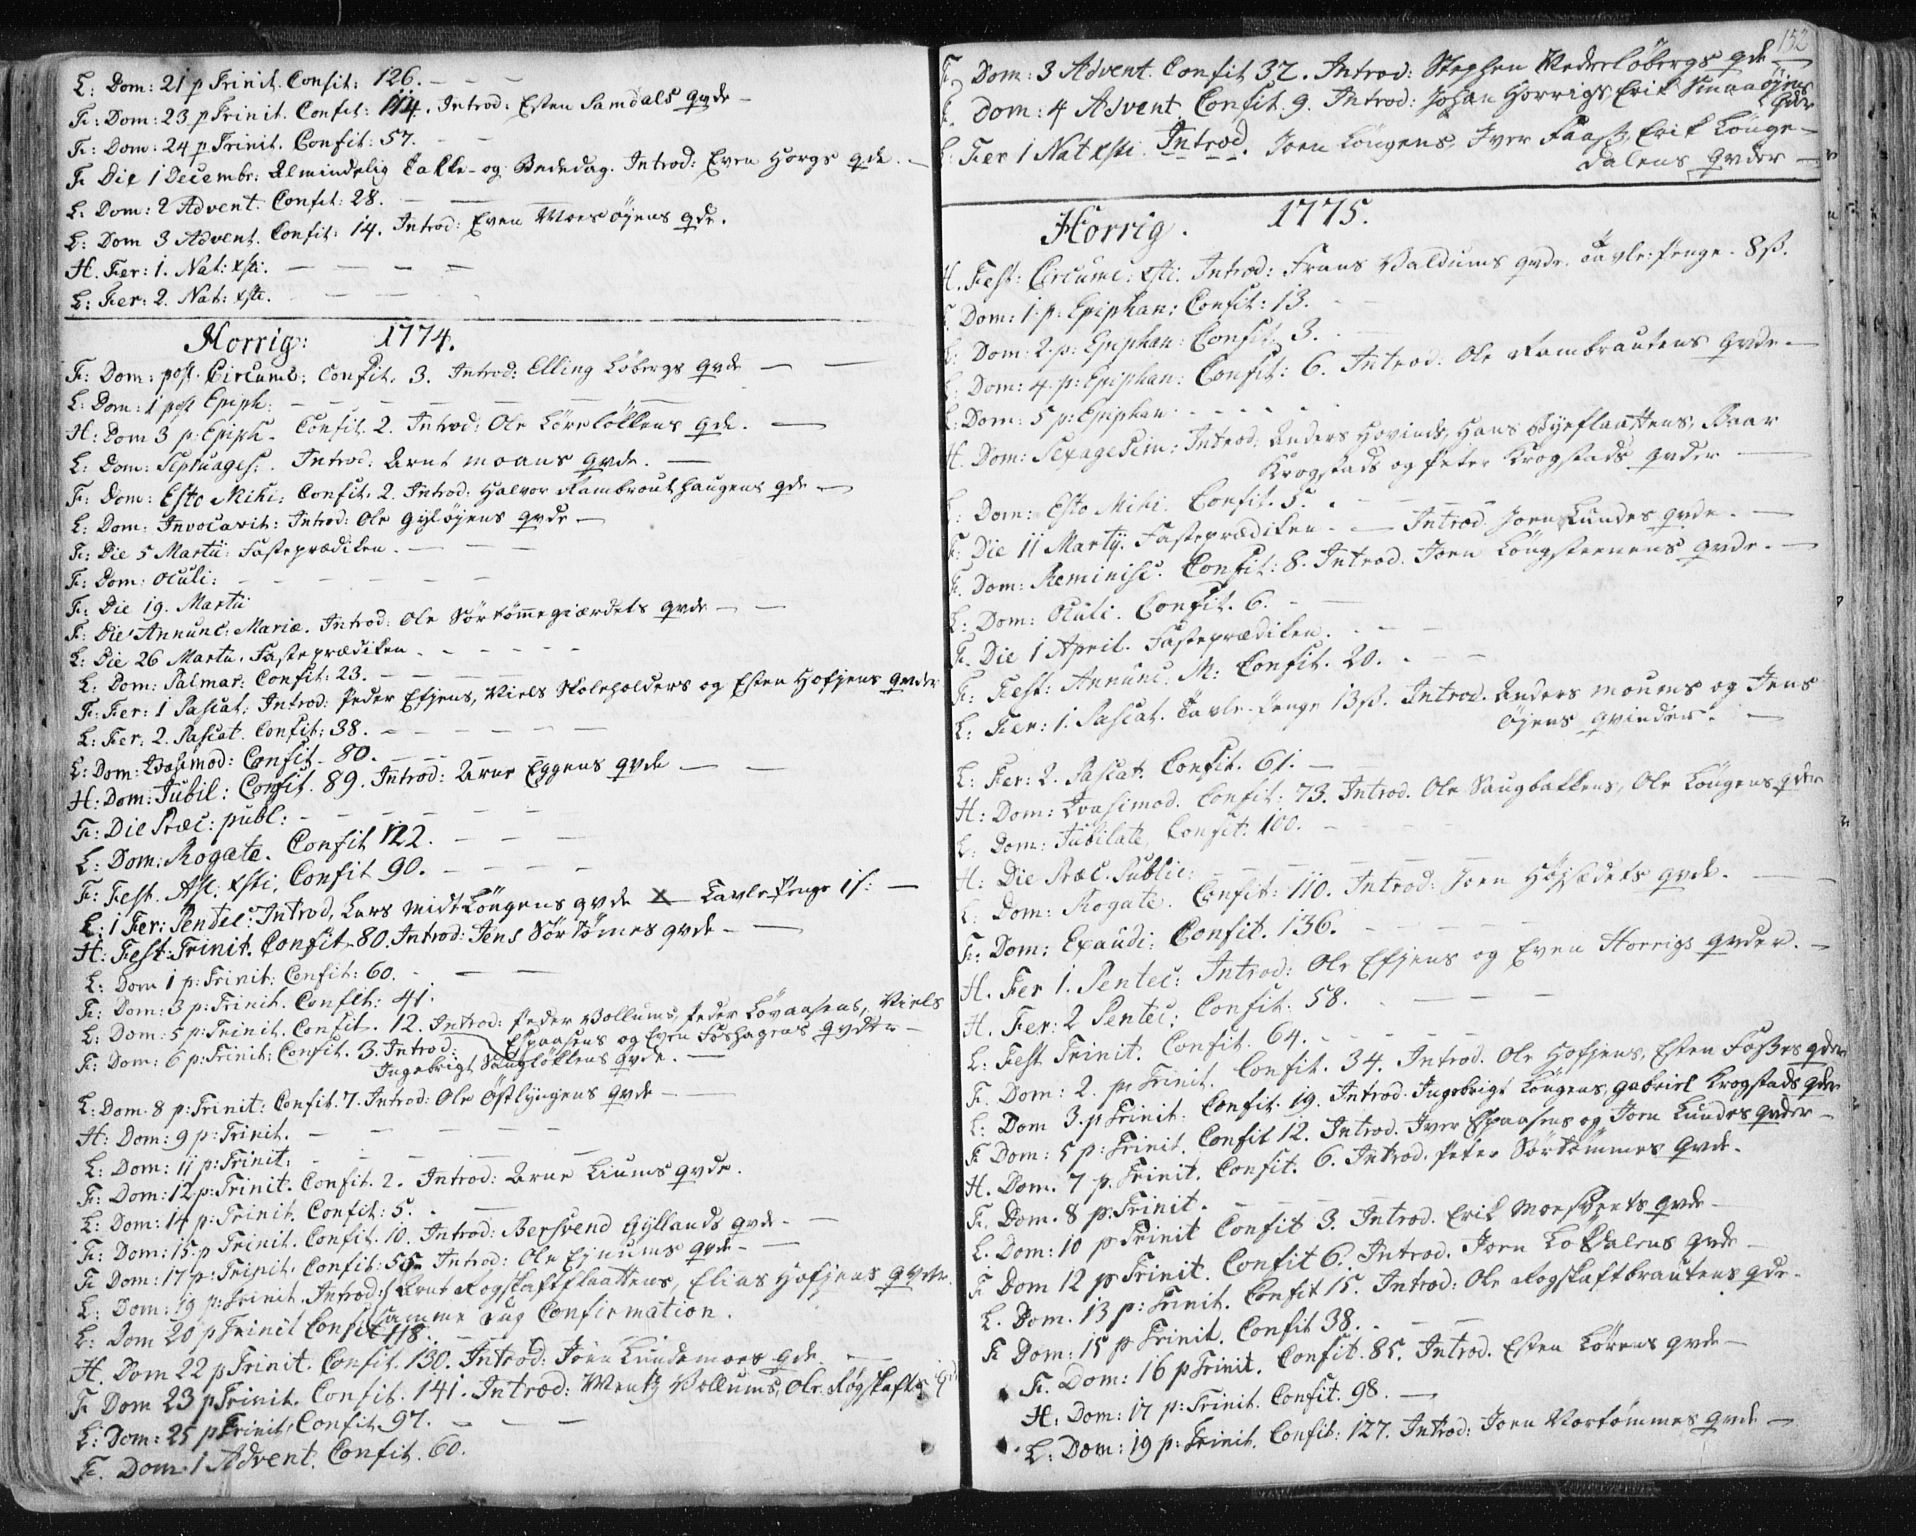 L: Dom: 21 p Trinit. Confit: 126. — — —
F: Dom: 23 p Trinit. Confit: 114. Introd: Esten Samdals Qvde —
F: Dom: 24 p Trinit. Confit: 57. — —
F Die 1 Decembr: Almindelig Takke- og Bededag. Introd: Even Horgs Qde. —
L: Dom: 2 Advent. Confit: 28. — — —
L: Dom 3 Advent. Confit: 14. Introd: Even Moesøyens Qde.
H. Fer: 1. Nat: Xsti. — — — —
L: Fer: 2. Nat: Xsti. — — —
Horrig: 1774.
F: Dom: post. Circumc: Confit. 3. Introd: Elling Løbergs Qvde — —
L: Dom: 1 post Epiph: — — — — — —
H: Dom 3 p: Epiph. Confit. 2. Introd: Ole Løreløkkens Qde. —
L: Dom: Septuages: . Introd: Arnt Moans Qvde. —
F: Dom: Esto Mihi: Confit. 2. Introd: Halvor Rambrouthaugens Qde —
L: Dom: Invocavit: Introd: Ole Gyløyens Qvde —
F: Die 5 Martii: Fasteprædiken. — — —
F: Dom: Oculi: — — — — —
F: Die 19. Martii
F: Die Annunc: Mariæ. Introd: Ole Sørtømmegiærdets Qvde — —
L: Die 26 Martii. Fasteprædiken — — — — —
L: Dom: Palmar: Confit: 23. — — —
F: Fer: 1 Pascat: Introd: Peder Efjens, Niels Skoleholders og Esten Hofjens Qvder
L: Fer: 2. Pascat. Confit: 38. — — — — —
L: Dom: Qvasimod: Confit. 80. — — —
H: Dom: Jubil: Confit. 89. Introd: Arne Eggens Qvde — —
F: Die Præc: publ: — — — — —
L: Dom: Rogate. Confit 122. — — —
F: Fest. Asc. Xsti. Confit 90. — — — —
L: 1 Fer: Pentec: Introd, Lars Midtløngens Qvde X — Tavlepenge 1 s: —
H: Fest: Trinit. Confit. 80. Introd: Jens Sørtømes Qvde — —
L: Dom 1 p: Trinit: Confit: 60. — — —
F: Dom: 3 p: Trinit. Confit: 41.
L: Dom: 5 p: Trinit. Confit. 12. Introd: Peder Vollums, Peder Løvaasens, Niels
Espaasens og Even Foshagens Qvder —
F: Dom: 6 p: Trinit: Confit. 3. Introd:
Ingebrigt Saugløkkens Qvde. —
L: Dom. 8 p: Trinit: Confit. 7. Introd: Ole Østlyngens Qvde — —
H: Dom: 9 p: Trinit. — — — — —
L: Dom: 11 p: Trinit: — — — — —
F: Dom: 12 p: Trinit. Confit. 2. Introd: Arne Liums Qvde.
L: Dom: 14 p: Trinit. Confit: 5. — —
F: Dom: 15. p Trinit. Confit. 10. Introd: Bersvend Gyllands Qvde — —
F Dom: 17 p: Trinit. Confit: 55. Introd: Ole Ejnums Qvde — —
L: Dom: 19 p: Trinit. Introd: Arnt Rogskaftflaattens, Elias Hofjens Qvder.
Samme Dag Confirmation.
L: Dom 20 p Trinit Confit 118. — —
H. Dom 22 p Trinit. Confit. 130. Introd: Joen Lundemoes Qde. —
F Dom 23 p Trinit. Confit. 141. Introd: Wentz Vollums, Ole Røgskafts
L: Dom: 25 p Trinit. Confit. 97. — — —
F. Dom: 1 Advent. Confit. 60.
152
F. Dom: 3 Advent. Confit 37. Introd: Stephen Vedresløbergs Qde —
F. Dom: 4 Advent. Confit. 9. Introd: Johan Horrigs, Erik Smaaøyens
Qvder
L. Fer 1 Nat Xsti. Introd. Joen Løngens, Iver Faass, Erik Lønge-
dalens Qvder —
Horrig. 1775.
H. Fest: Circumc: Xsti. Introd: Frans Valdums Qvde. Tavle: penge. 8 s.
Dom: 1. p: Epiphan: Confit: 13. — —
L: Dom: 2. p: Epiphan: Confit. 3. —
Dom: 4. p: Epiphan: Confit: 6. Introd: Ole Rambrautens Qvde. —
L: Dom: 5 p: Epiphan. — — — —
H. Dom: Sexagesim: Introd. Anders Hovinds, Hans Øyeflaattens, Baar
Krogstads og Peter Krogstads Qvder —
L: Dom: Esto Mihi. Confit. 5. — — —
F: Die 11 Martij. Fasteprædiken. — — Introd. Joen Lundes Qvde. —
F. Dom: Reminisc. Confit: 8. Introd. Joen Løngsteenens Qvde. —
L: Dom: Oculi. Confit. 6. — —
F. Die 1 April. Fasteprædiken. — — —
F: Fest: Annunc: M: Confit. 20. — — —
L: Fer: 1. Pascat. Tavle-penge 13 s. Introd. Anders Moums og Jens
Øyens Qvinder. —
L: Fer: 2. Pascat. Confit. 61. —
H: Dom: Qvasimod. Confit: 73. Introd. Ole Saugbakkens, Ole Løngens Qvder
L: Dom: Jubilate. Confit: 100. — — —
H: Die Præc. Public: — — — — —
L: Dom: Rogate. Confit: 110. Introd: Joen Højsædets Qvde. — —
F: Dom: Exaudi: Confit. 136. — — —
H. Fer 1. Pentec: Introd: Ole Efjens og Even Horrigs Qvder. —
H. Fer: 2 Pentec: Confit: 58. — — — —
L: Fest Trinit. Confit. 64. — — — —
F. Dom: 2. p: Trinit. Confit. 34. Introd. Ole Hofjens, Esten Fosses Qder
L: Dom 3. p Trinit: Confit. 19. Introd. Ingebrigt Løngens, Gabriel Krogstads Qder
F Dom: 5 p: Trinit. Confit 12. Introd. Iver Espaasens og Joen Lundes Qvder —
H. Dom. 7 p. Trinit. Confit. 6. Introd. Peter Sørtømmes Qvde.
F. Dom. 8 p: Trinit. — — — — —
L. Dom: 10 p Trinit Confit 3. Introd. Erik Moesvets Qvde —
F Dom 12 p Trinit. Confit 6. Introd. Joen Lo Dalens Qvde —
L. Dom. 13 p: Trinit. Confit 15. Introd: Ole Rogskaftbrautens Qde.
F Dom: 15 p Trinit. Confit 38. — — —
F. Dom: 16 p Trinit. Confit. 85. Introd. Esten Lørens Qvde —
H: Dom: 17 p: Trinit. Confit. 98. —
L: Dom: 19 p: Trinit. Confit: 127. Introd: Joen Nortømmes Qvde —